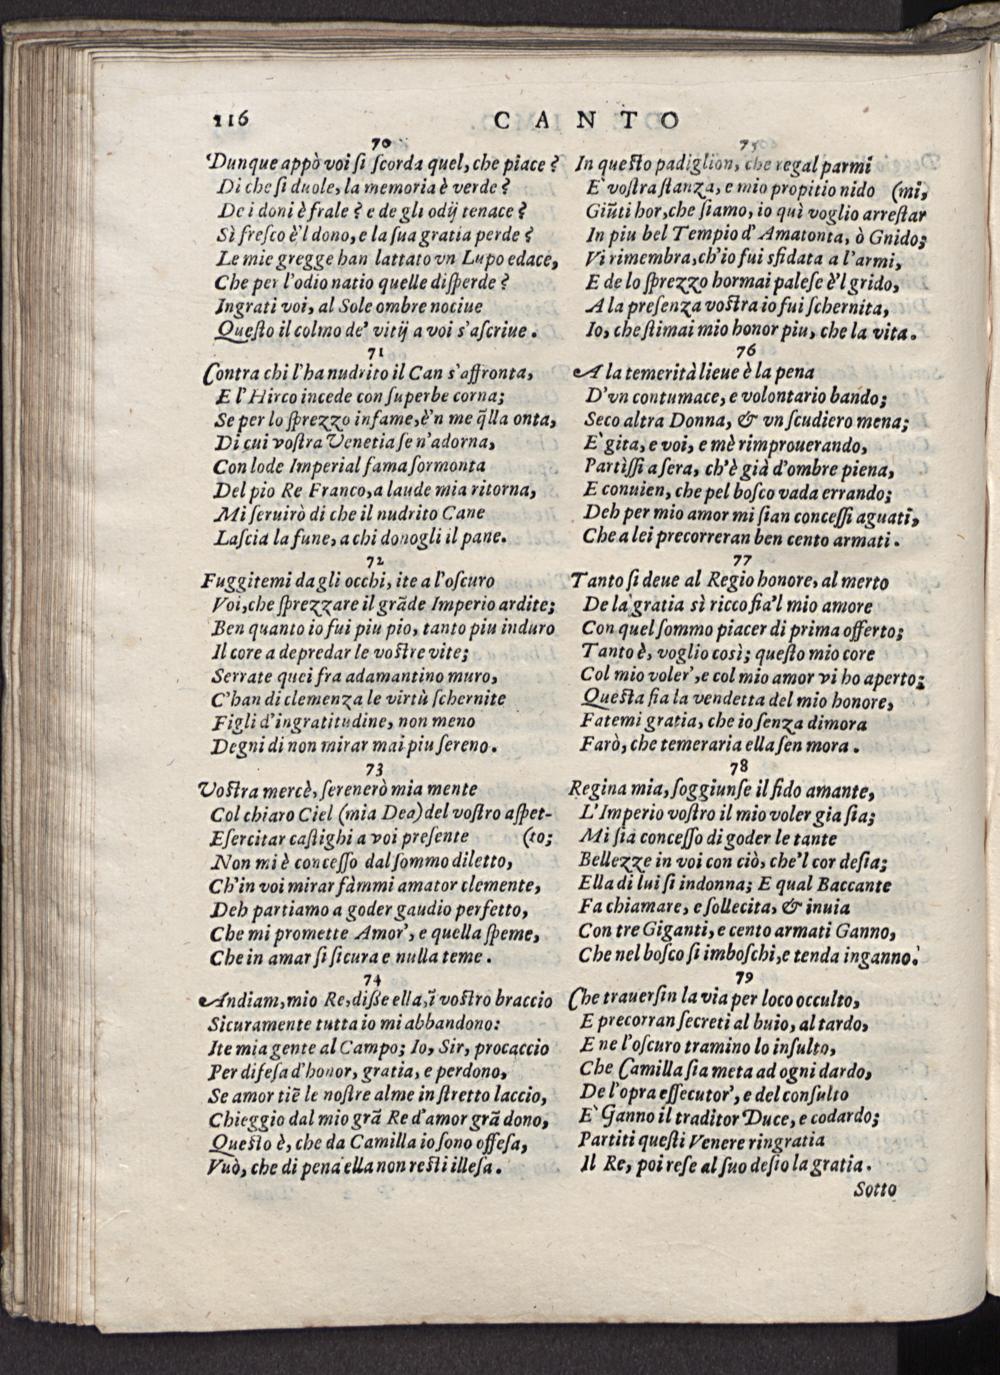 116
CANTO
70
Dunque appò voi si scorda quel, che piace?
Di che si duole, la memoria è verde?
De i doni è frale? e de gli odij tenace?
Sì fresco è'l dono, e la sua gratia perde?
Le mie gregge han lattato vn Lupo edace,
Che per l'odio natio quelle disperde?
Ingrati voi, al Sole ombre nociue
Questo il colmo de' vitij a voi s'ascriue.
71
Contra chi l'ha nudrito il Can s'affronta,
E l'Hirco incede con superbe corna;
Se per lo sprezzo infame, è'n me q̃lla onta,
Di cui vostra Venetia se n'adorna,
Con lode Imperial fama sormonta
Del pio Re Franco, a laude mia ritorna,
Mi seruirò di che il nudrito Cane
Lascia la fune, a chi donogli il pane.
72
Fuggitemi dagli occhi, ite a l'oscuro
Voi, che sprezzare il grãde Imperio ardite;
Ben quanto io fui piu pio, tanto piu induro
Il core a depredar le vostre vite;
Serrate quei fra adamantino muro,
C'han di clemenza le virtù schernite
Figli d'ingratitudine, non meno
Degni di non mirar mai piu sereno.
73
Vostra mercè, serenerò mia mente
Col chiaro Ciel (mia Dea) del vostro aspet-
Esercitar castighi a voi presente (to;
Non mi è concesso dal sommo diletto,
Ch'in voi mirar fàmmi amator clemente,
Deh partiamo a goder gaudio perfetto,
Che mi promette Amor', e quella speme,
Che in amar si sicura e nulla teme.
74
Andiam, mio Re, disse ella, ĩ vostro braccio
Sicuramente tutta io mi abbandono:
Ite mia gente al Campo; Io, Sir, procaccio
Per difesa d'honor, gratia, e perdono,
Se amor tiẽ le nostre alme in stretto laccio,
Chieggio dal mio grã Re d'amor grã dono,
Questo è, che da Camilla io sono offesa,
Vuò, che di pena ella non resti illesa.
75
In questo padiglion, che regal parmi
E' vostra stanza, e mio propitio nido (mi,
Giũti hor, che siamo, io quì voglio arrestar
In piu bel Tempio d'Amatonta, ò Gnido;
Vi rimembra, ch'io fui sfidata a l'armi,
E de lo sprezzo hormai palese è'l grido,
A la presenza vostra io fui schernita,
Io, che stimai mio honor piu, che la vita.
76
A la temerità lieue è la pena
D'vn contumace, e volontario bando;
Seco altra Donna, & vn scudiero mena;
E' gita, e voi, e mè rimprouerando,
Partìssi a sera, ch'è già d'ombre piena,
E conuien, che pel bosco vada errando;
Deh per mio amor mi sian concessi aguati,
Che a lei precorreran ben cento armati.
77
Tanto si deue al Regio honore, al merto
De la gratia sì ricco sia'l mio amore
Con quel sommo piacer di prima offerto;
Tanto è, voglio così; questo mio core
Col mio voler', e col mio amor vi ho aperto;
Questa fia la vendetta del mio honore,
Fatemi gratia, che io senza dimora
Farò, che temeraria ella sen mora.
78
Regina mia, soggiunse il fido amante,
L'Imperio vostro il mio voler gia sia;
Mi sia concesso di goder le tante
Bellezze in voi con ciò, che'l cor desia;
Ella di lui si indonna; E qual Baccante
Fa chiamare, e sollecita, & inuia
Con tre Giganti, e cento armati Ganno,
Che nel bosco si imboschi, e tenda inganno.
79
Che trauersin la via per loco occulto,
E precorran secreti al buio, al tardo,
E ne l'oscuro tramino lo insulto,
Che Camilla sia meta ad ogni dardo,
De l'opra essecutor', e del consulto
E' Ganno il traditor Duce, e codardo;
Partiti questi Venere ringratia
Il Re, poi rese al suo desio la gratia.
Sotto